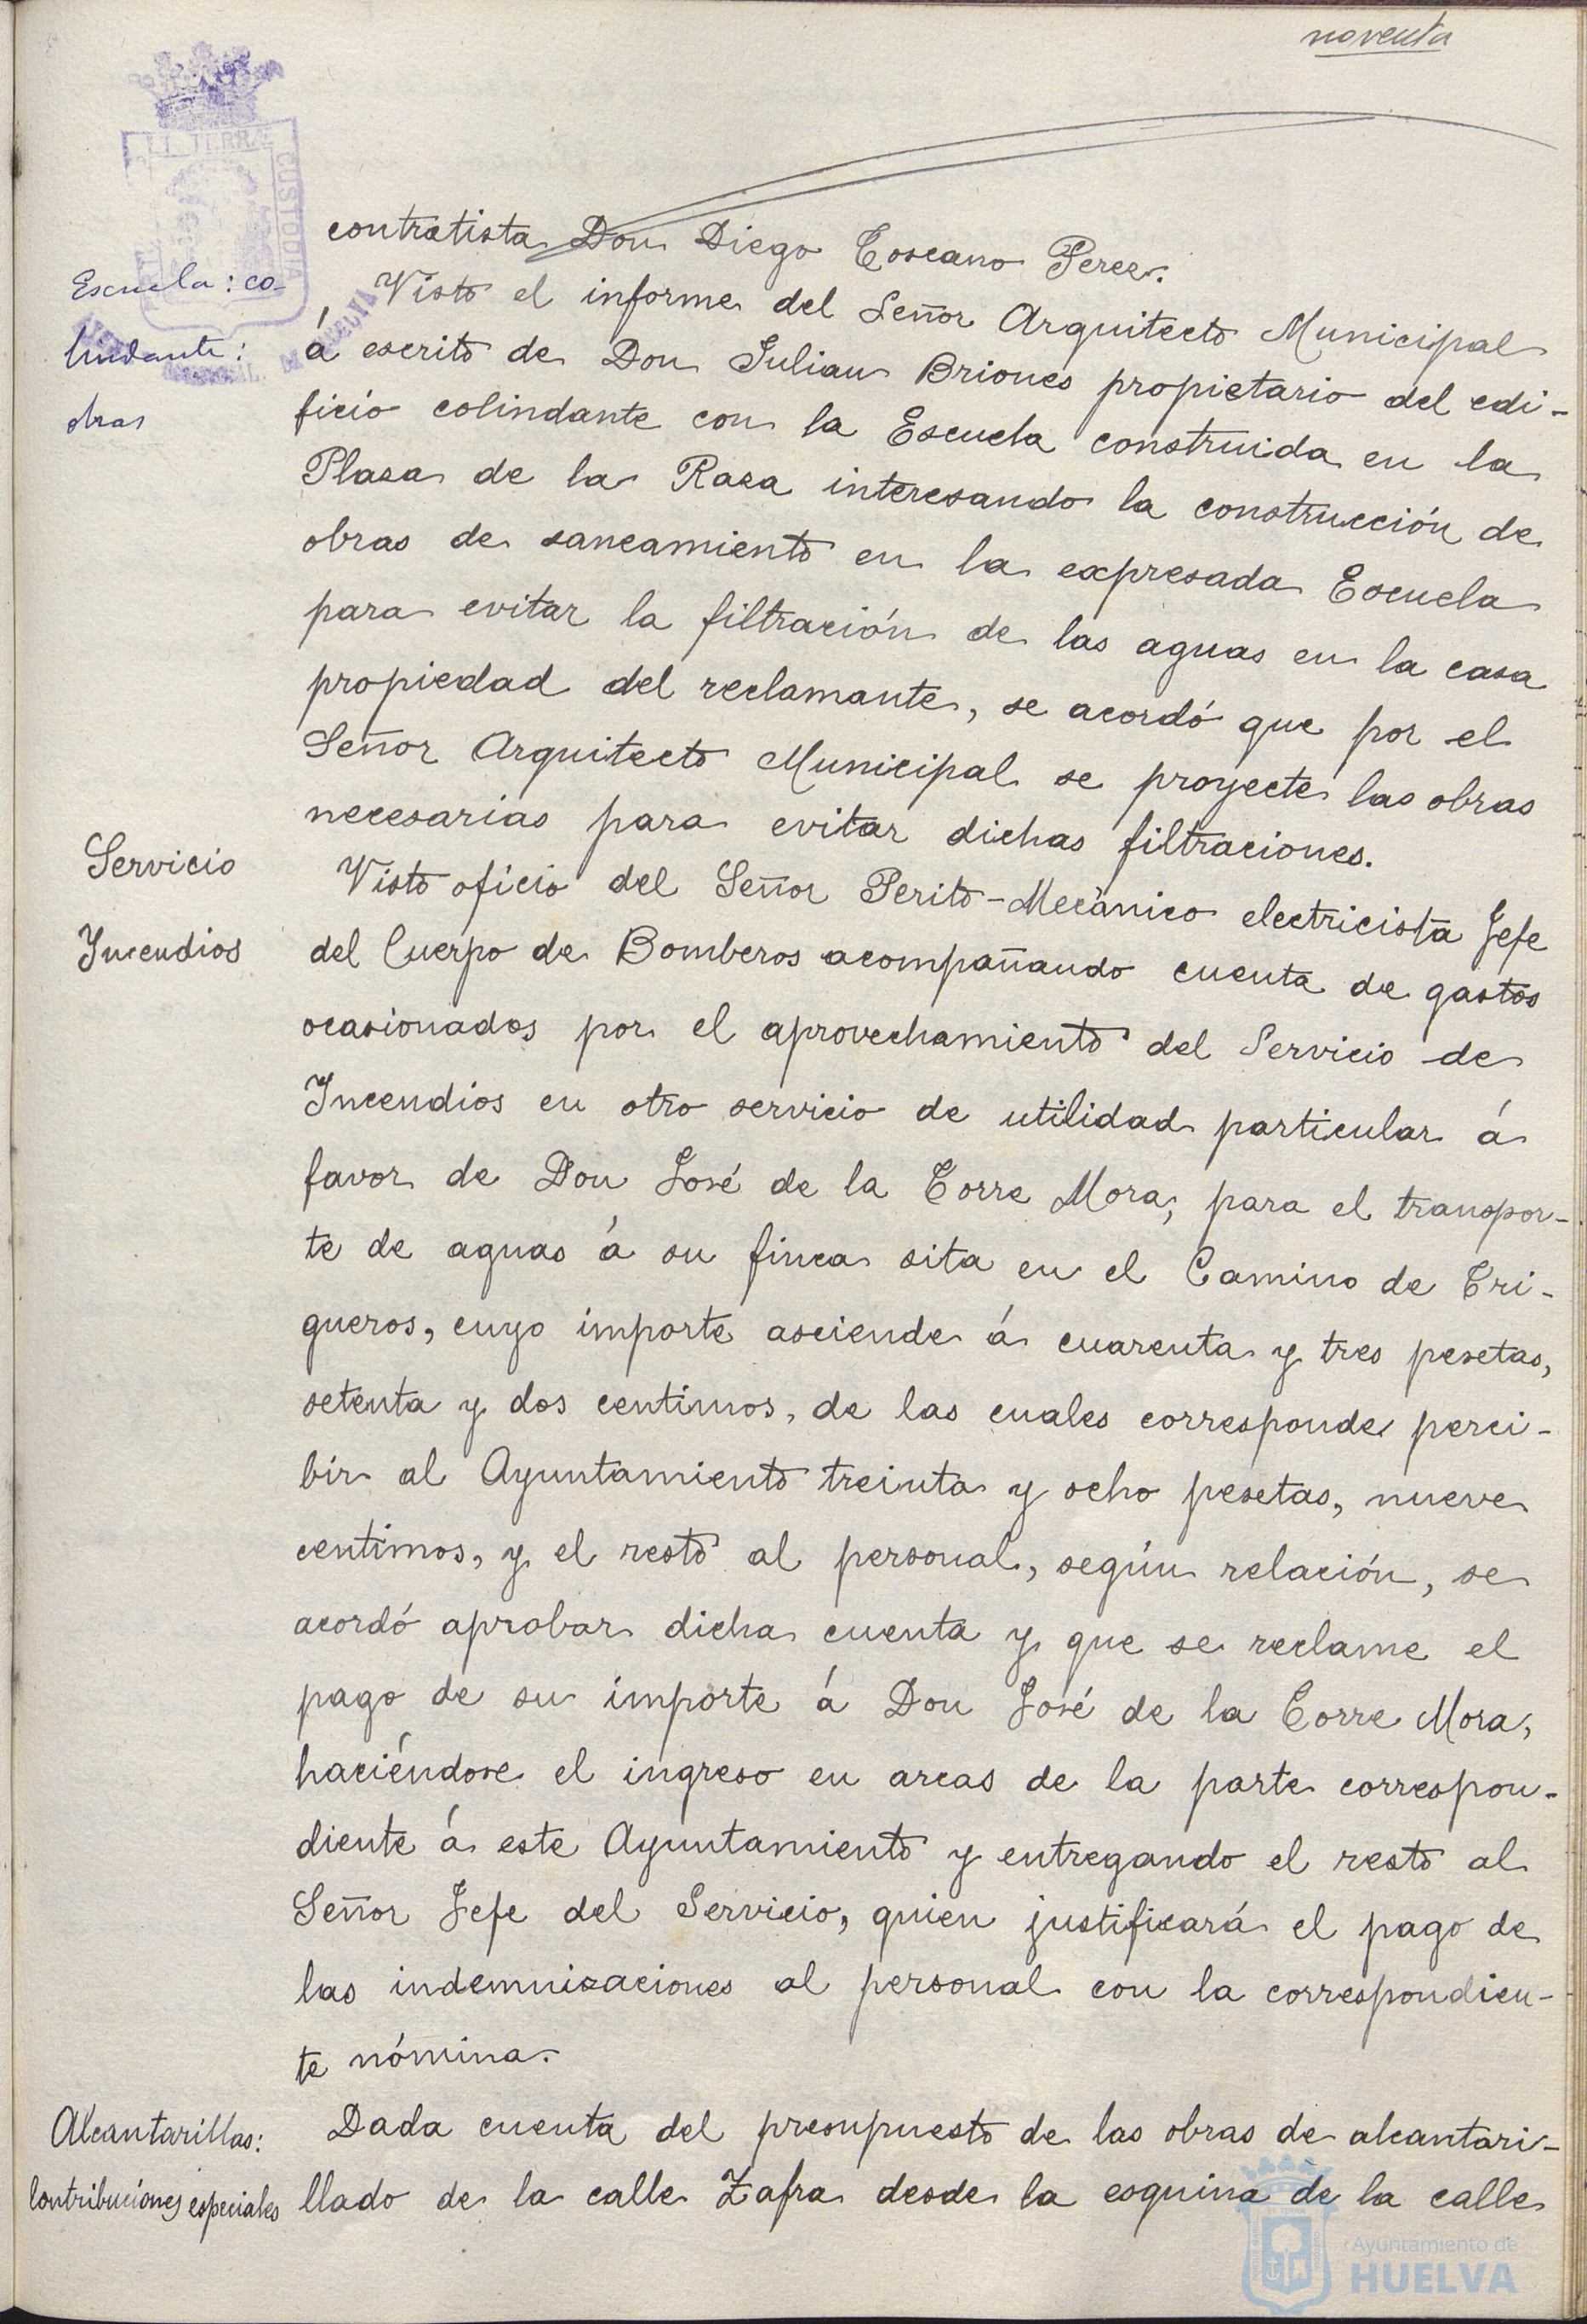 noventa
contratista Don Diego Toscano Perez.
Escuela: co-
lindante:
obras
Visto el informe del Señor Arquitecto Municipal
á escrito de Don Julian Briones propietario del edi-
ficio colindante con la Escuela construida en la
Plaza de la Raza interesando la construcción de
obras de saneamiento en la expresada Escuela
para evitar la filtración de las aguas en la casa
propiedad del reclamante, se acordó que por el
Señor Arquitecto Municipal se proyecte las obras
necesarias para evitar dichas filtraciones.
Servicio
Incendios
Visto oficio del Señor Perito-Mecánico electricista Jefe
del Cuerpo de Bomberos acompañando cuenta de gastos
ocasionados por el aprovechamiento del Servicio de
Incendios en otro servicio de utilidad particular á
favor de Don José de la Torre Mora, para el transpor-
te de aguas á su finca sita en el Camino de Tri-
gueros, cuyo importe asciende á cuarenta y tres pesetas,
setenta y dos centimos, de las cuales corresponde perci-
bir al Ayuntamiento treinta y ocho pesetas, nueve
centimos, y el resto al personal, según relación, se
acordó aprobar dicha cuenta y que se reclame el
pago de su importe á Don José de la Torre Mora,
haciéndose el ingreso en arcas de la parte correspon-
diente á este Ayuntamiento y entregando el resto al
Señor Jefe del Servicio, quien justificará el pago de
las indemnizaciones al personal con la correspondien-
te nómina.
Alcantarillas:
Contribuciones especiales
Dada cuenta del presupuesto de las obras de alcantari-
llado de la calle Zafra desde la esquina de la calle
TERRÆ
CUSTODIA
Ayuntamiento de
HUELVA